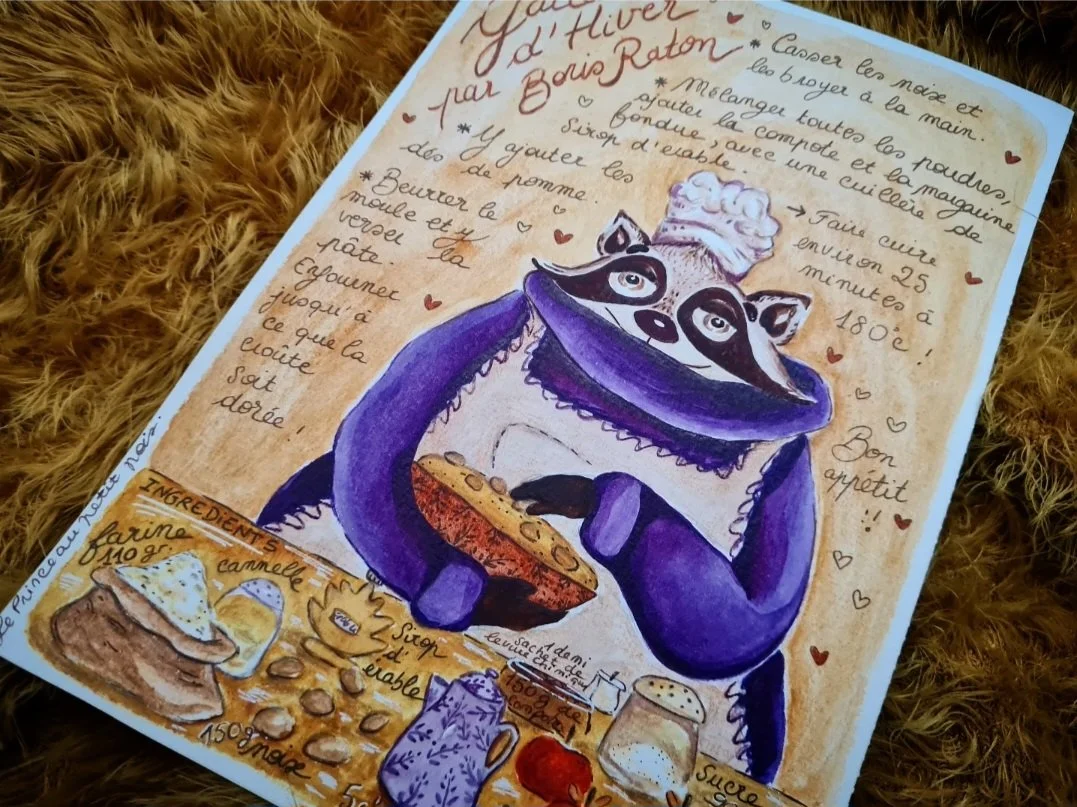 d'Hiver
par Boris Raton
* Casser les noix et
les broyer à la main.
* Mélanger toutes les poudres,
ajouter la compote et la margarine
fondue, avec une cuillère de
Sirop d'érable.
* Y ajouter les
dés de pomme.
* Beurrer le
moule et y
verser la
pâte.
Enfourner
jusqu'à
ce que la
croûte
soit
dorée!
→ Faire cuire
environ 25
minutes à
180°c!
Bon
appétit
!!
Le Prince au Petit Pois.
INGREDIENTS
farine
110 gr.
cannelle
Sirop
d'
érable
150g noix
1 demi
sachet de
levure chimique
Sucre